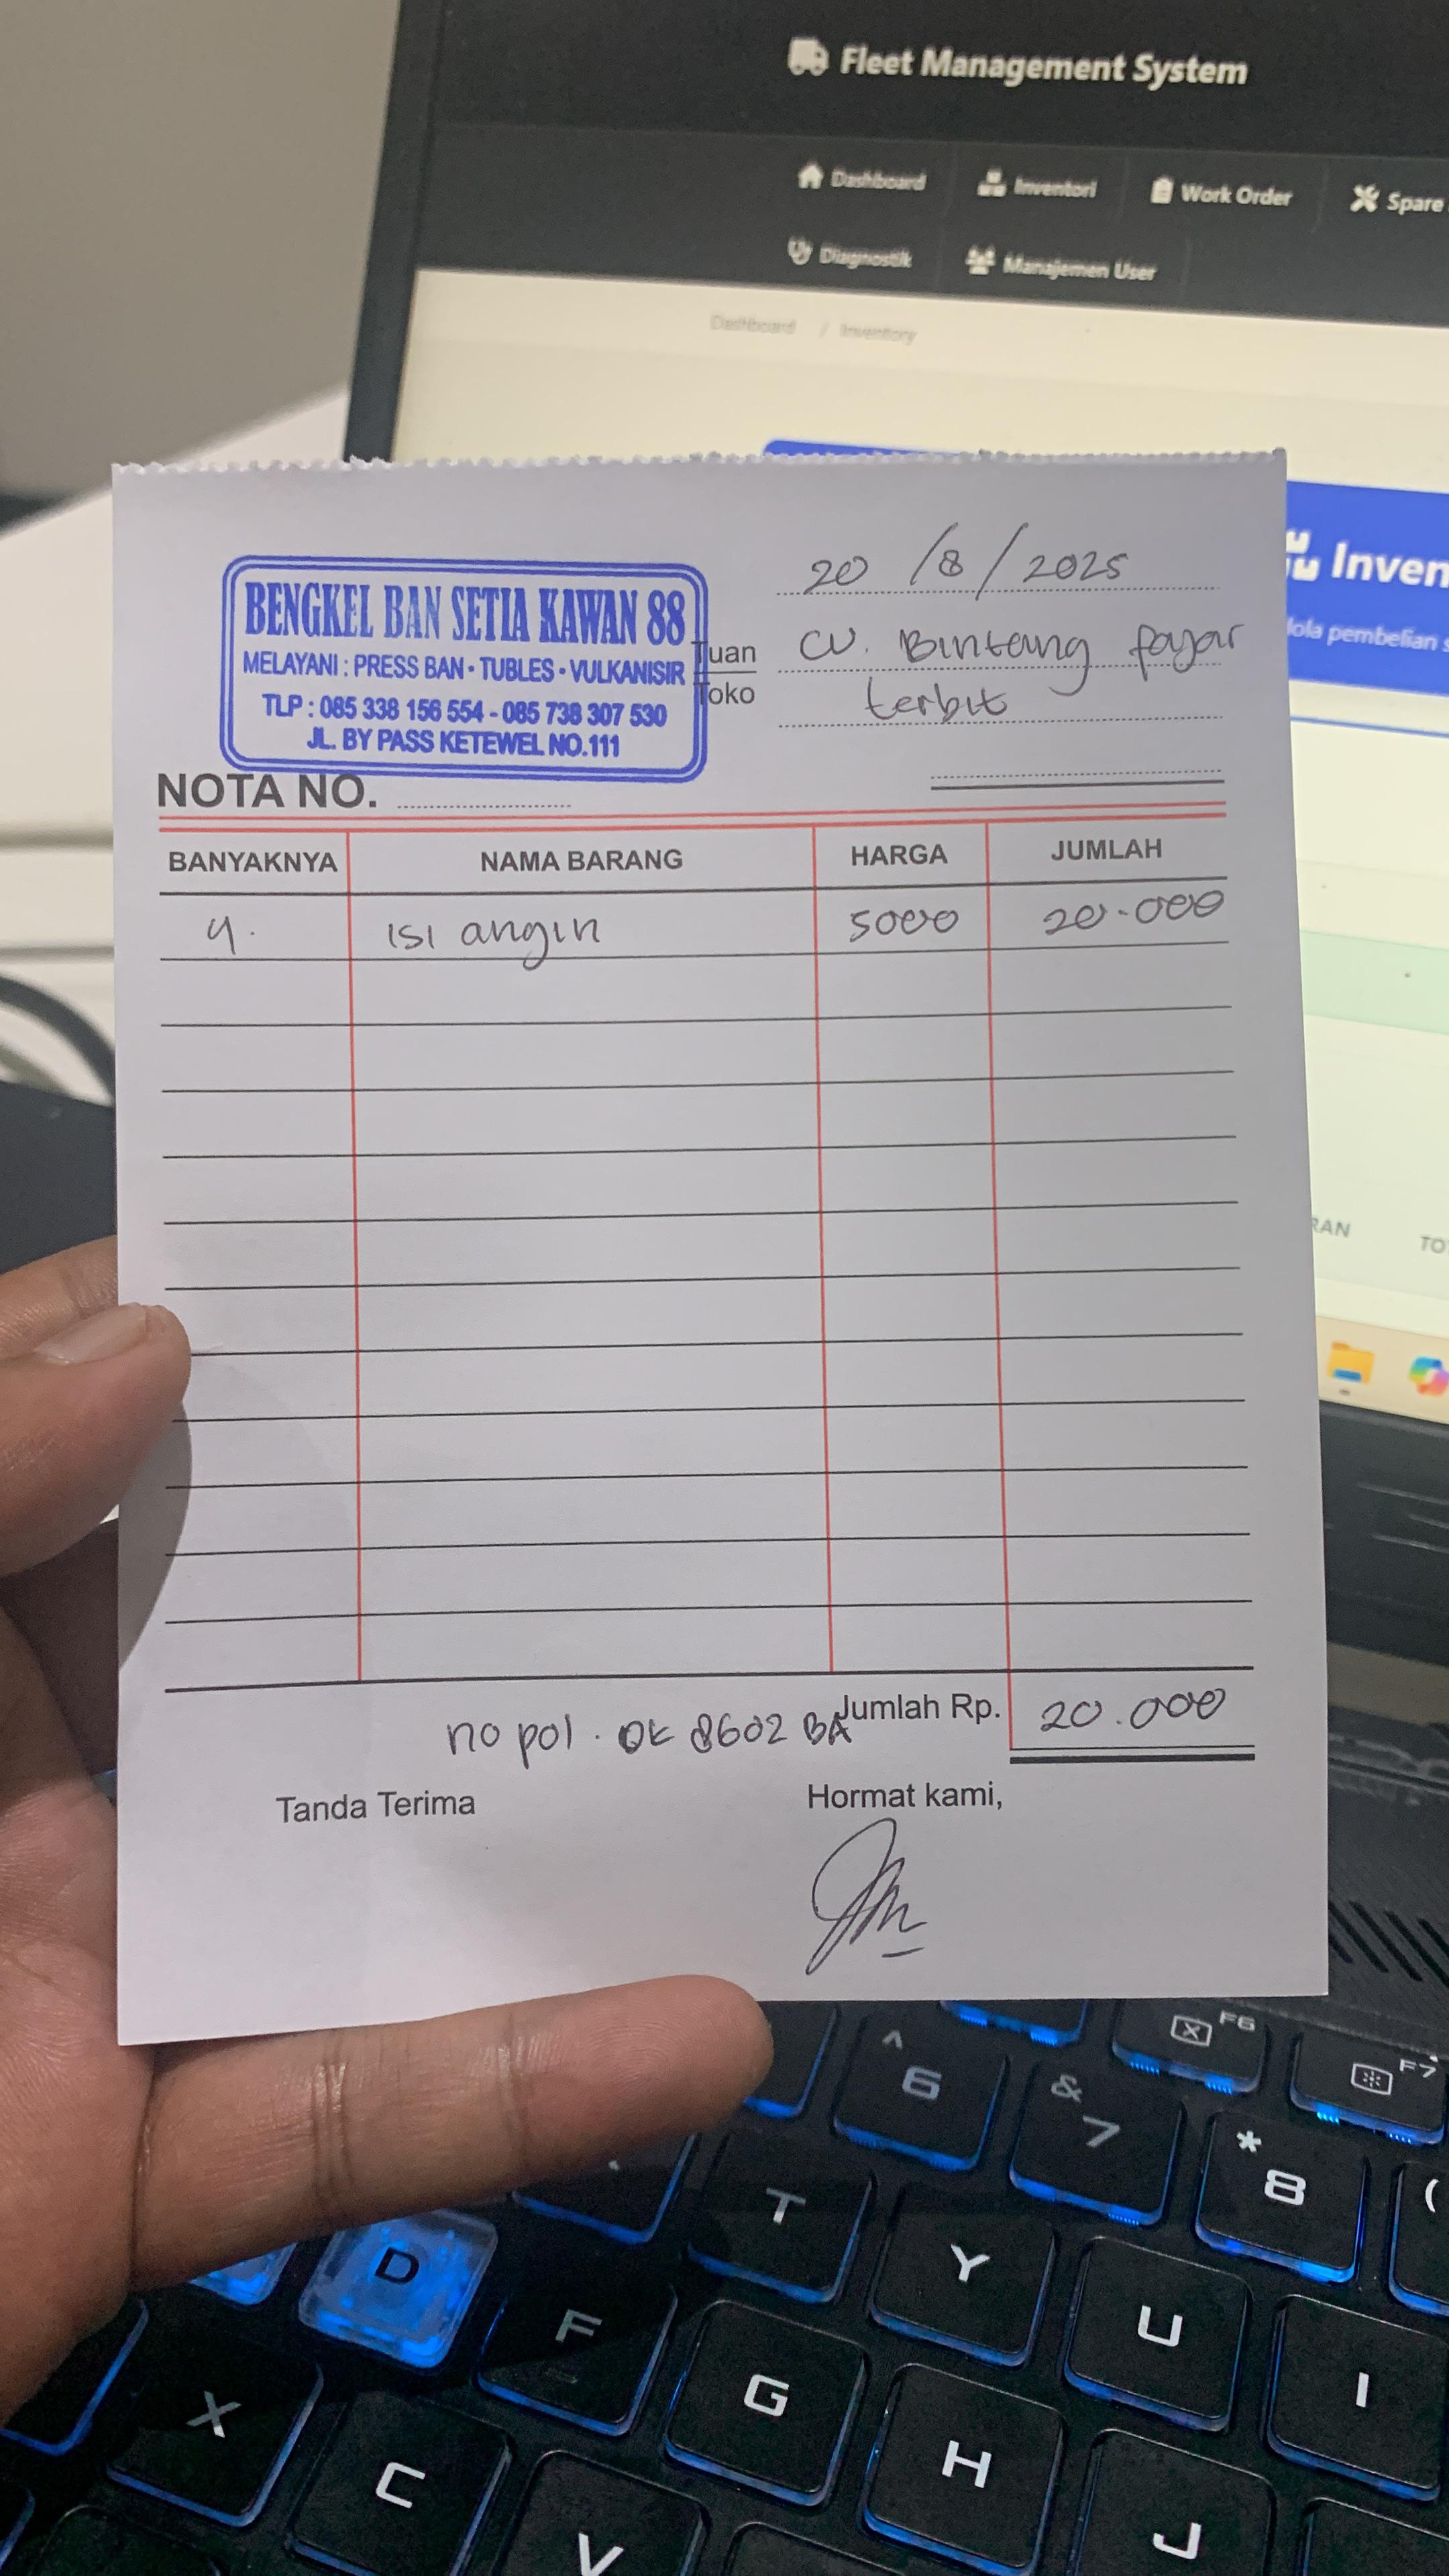 Fleet Management System
Dashboard Inventori Work Order Spare
Diagnostik Manajemen User
Dashboard / Inventory
Inven
lola pembelian s
RAN TO
20/8/2025
BENGKEL BAN SETIA KAWAN 88
MELAYANI : PRESS BAN • TUBLES • VULKANISIR
TLP : 085 338 156 554 - 085 738 307 530
JL. BY PASS KETEWEL NO.111
Tuan
Toko
CV. Bintang fajar
terbit
NOTA NO.
BANYAKNYA NAMA BARANG HARGA JUMLAH
4. isi angin 5000 20.000
no pol. DK 8602 BA Jumlah Rp. 20.000
Tanda Terima Hormat kami,
F6
F7
^ 6
& 7
* 8
(
T Y U I
D F G H J
X C V